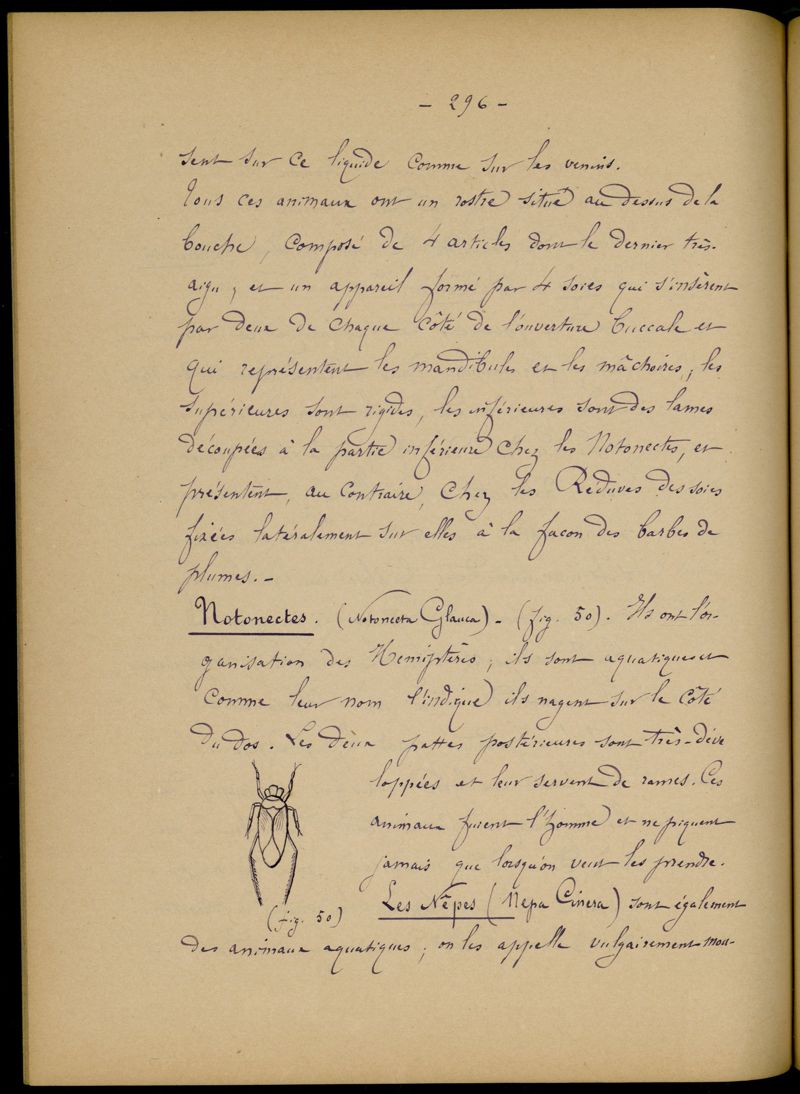 - 296 -
sent sur ce liquide comme sur les venins.
Tous ces animaux ont un rostre situé au dessus de la
bouche, composé de 4 articles dont le dernier très-
aigu, et un appareil formé par 4 soies qui s'insèrent
par deux de chaque côté de l'ouverture buccale et
qui représentent les mandibules et les mâchoires, les
supérieures sont rigides, les inférieures sont des lames
découpées à la partie inférieure chez les Notonectes, et
présentent, au contraire, chez les Réduves des soies
fixées latéralement sur elles à la façon des barbes de
plumes. -
Notonectes. (Notonecta Glauca) - (fig. 50). Ils ont l'or-
ganisation des Hémiptères ; ils sont aquatiques et
comme leur nom l'indique ils nagent sur le côté
du dos. Les deux pattes postérieures sont très-déve
loppées et leur servent de rames. Ces
animaux fuient l'homme et ne piquent
jamais que lorsqu'on veut les prendre.
(fig. 50)
Les Nèpes (Nepa Cinera) sont également
des animaux aquatiques ; on les appelle vulgairement mou-